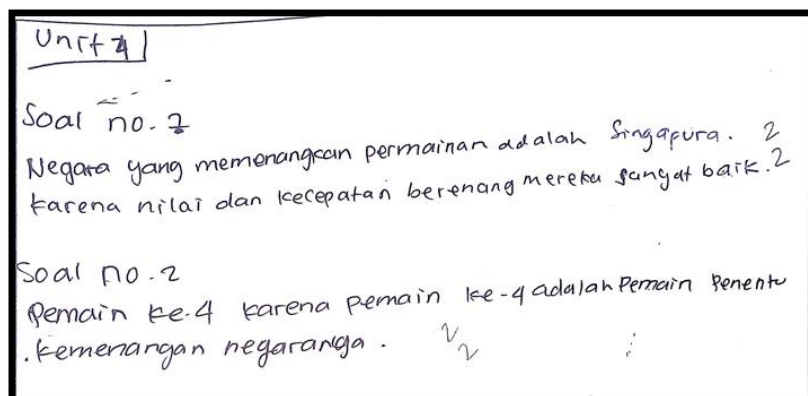 Unit 4
Soal no. 1
Negara yang memenangkan permainan adalah Singapura. 2
Karena nilai dan kecepatan berenang mereka sangat baik. 2
Soal no. 2
Pemain ke-4 karena pemain ke-4 adalah Pemain Penentu
kemenangan negaranya. 2 2